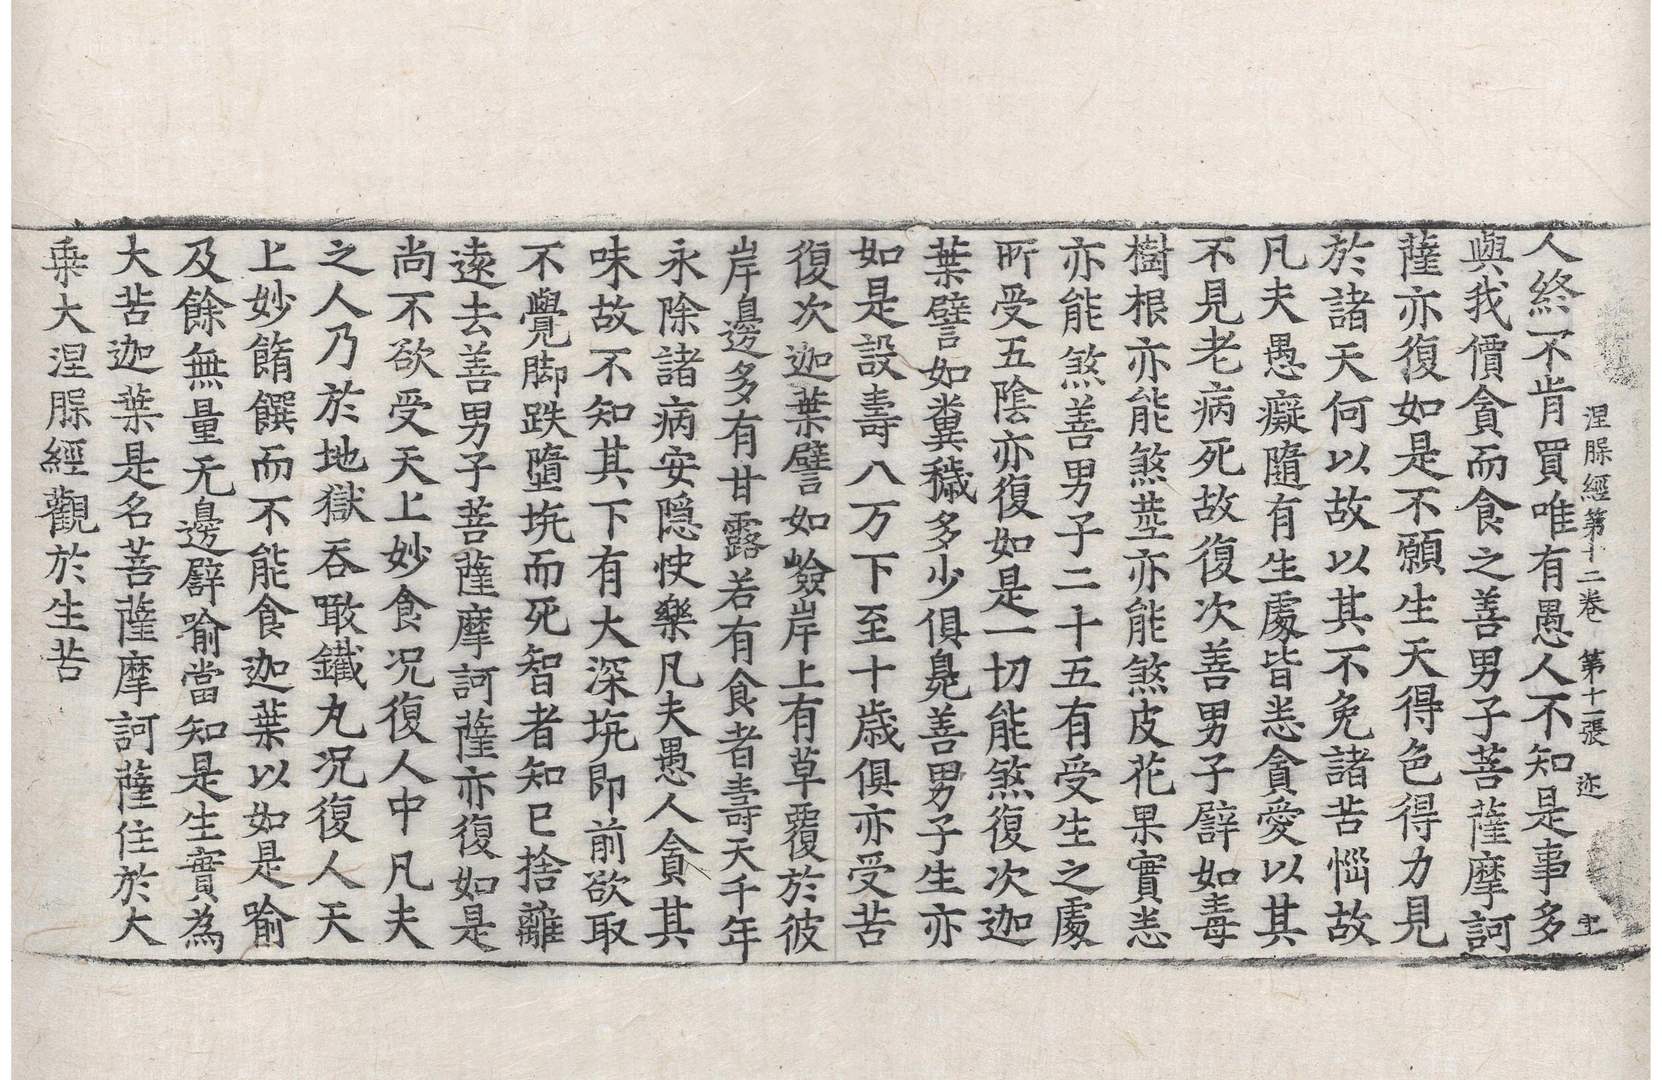 涅脲經第十二卷 第十一張 迩
人終不肯買唯有愚人不知是事多
與我價貪而食之善男子菩薩摩訶
薩亦復如是不願生天得色得力見
於諸天何以故以其不免諸苦惱故
凡夫愚癡隨有生處皆悉貪愛以其
不見老病死故復次善男子譬如毒
樹根亦能煞莖亦能煞皮花果實悉
亦能煞善男子二十五有受生之處
所受五陰亦復如是一切能煞復次迦
葉譬如糞穢多少俱臰善男子生亦
如是設壽八万下至十歲俱亦受苦
復次迦葉譬如嶮岸上有草覆於彼
岸邊多有甘露若有食者壽天千年
永除諸病安隱快樂凡夫愚人貪其
味故不知其下有大深坑即前欲取
不覺脚跌墮坑而死智者知已捨離
遠去善男子菩薩摩訶薩亦復如是
尚不欲受天上妙食况復人中凡夫
之人乃於地獄吞噉鐵丸况復人天
上妙餚饌而不能食迦葉以如是喻
及餘無量无邊譬喻當知是生實為
大苦迦葉是名菩薩摩訶薩住於大
乗大涅脲經觀於生苦